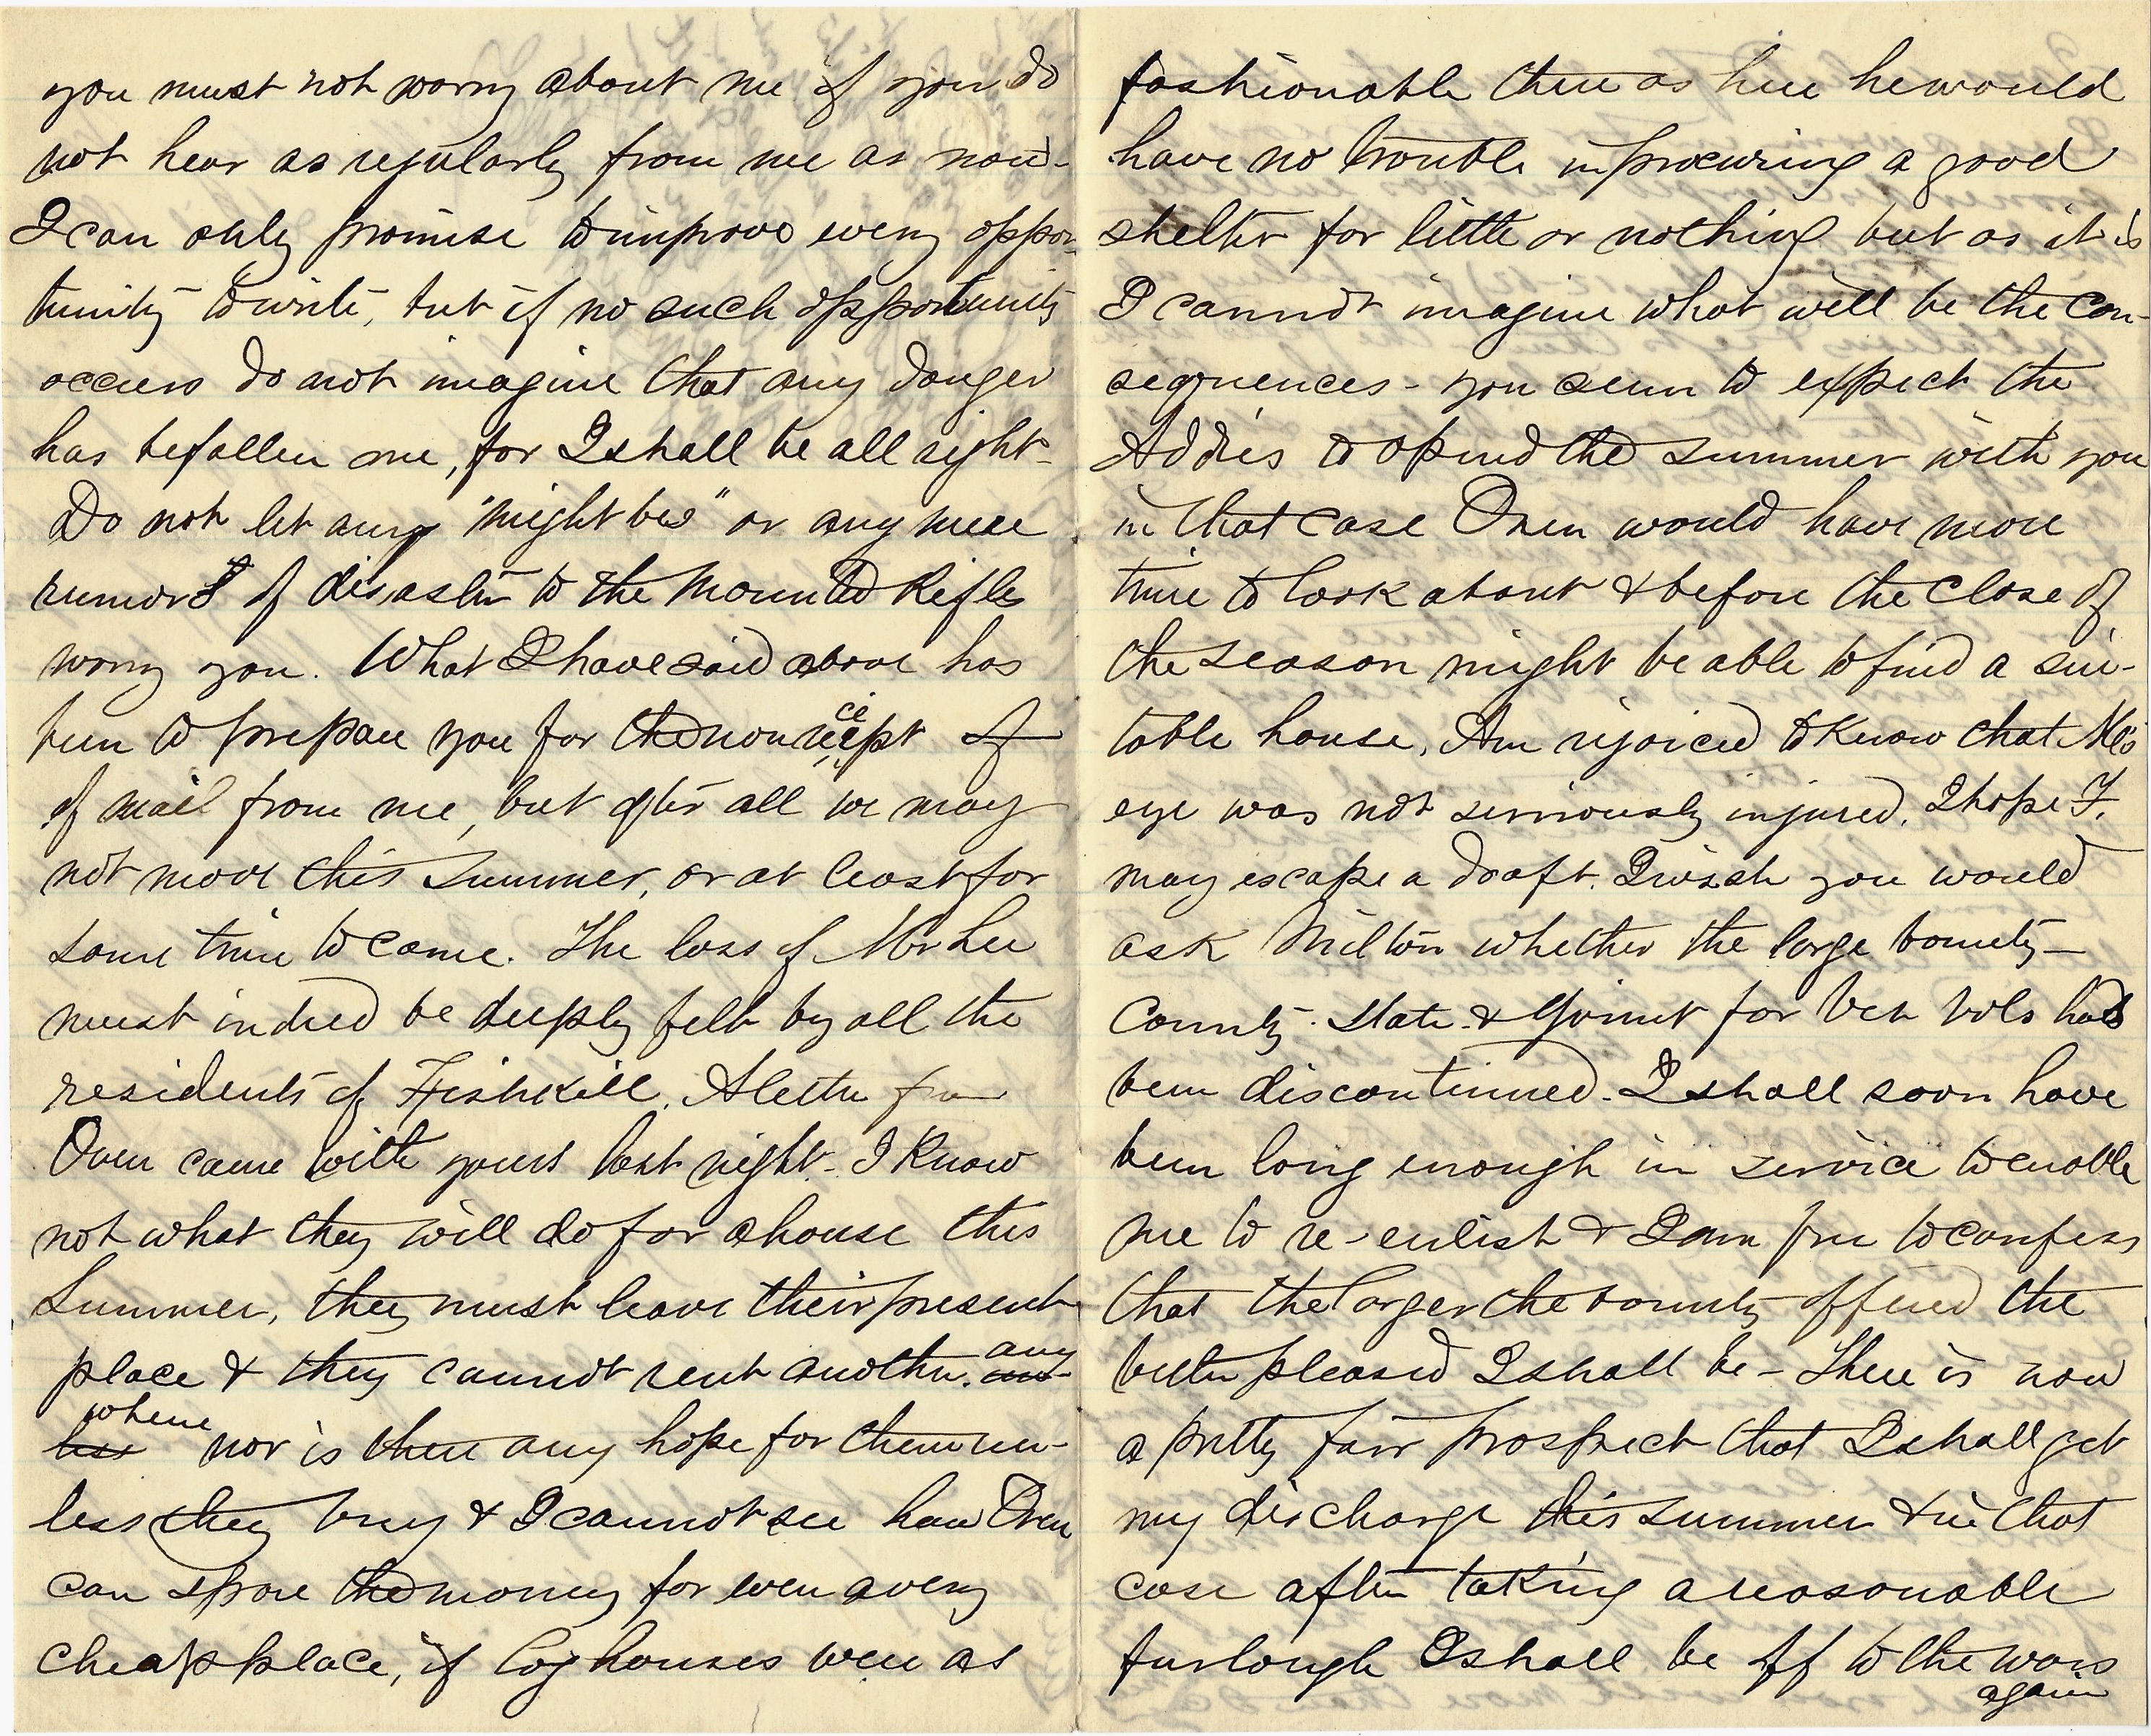 you must not worry about me if you do
not hear as regularly from me as now-
I can only promise to improve every oppor-
tunity to write, but if no such opportunity
occurs do not imagine that any danger
has befallen me, for I shall be all right-
Do not let any "might bes" or any mere
rumors of disaster to the Mounted Rifles
worry you. What I have said above has
been to prepare you for the non receipt of
of mail from me, but after all we may
not move this summer, or at least for
some time to come. The loss of Mr Lee
must indeed be deeply felt by all the
residents of Fishkill. A letter from
Oven came with yours last night- I know
not what they will do for a house this
Summer, they must leave their present
place & they cannot rent another any
where nor is there any hope for them un-
less they buy & I cannot see how Oven
can spare the money for even a very
cheap place, if log houses were as
fashionable there as here he would
have no trouble in procuring a good
shelter for little or nothing but as it is
I cannot imagine what will be the con-
sequences - you seem to expect the
Addies to spend the summer with you
in that case Oven would have more
time to look about & before the close of
the season might be able to find a sui-
table house. Am rejoiced to know that M's
eye was not seriously injured. I hope F.
may escape a draft. I wish you would
ask Milton whether the large bounty-
County. State & Gov'mt for Vet Vols has
been discontinued. I shall soon have
been long enough in service to enable
me to re-enlist & I am free to confess
that the larger the bounty offered the
better pleased I shall be - There is now
a pretty fair prospect that I shall get
my discharge this summer & in that
case after taking a reasonable
furlough I shall be off to the wars
again